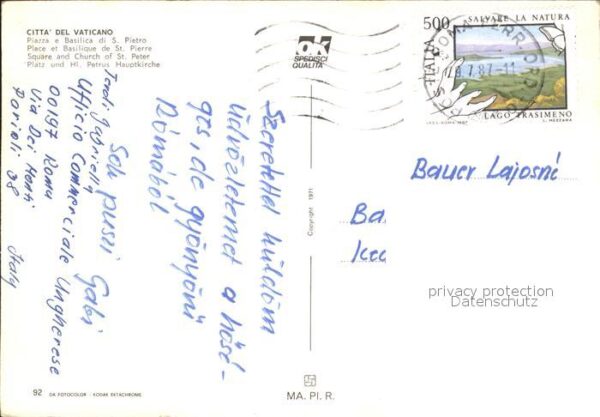 CITTA' DEL VATICANO
Piazza e Basilica di S. Pietro
Place et Basilique de St. Pierre
Square and Church of St. Peter
Platz und Hl. Petrus Hauptkirche
ok
SPEDISCI
QUALITÀ
500
SALVARE LA NATURA
ITALIA
LAGO TRASIMENO
L. MEZZANA
ROMA FERR
7.87-11
Szeretettel küldöm
üdvözletemet a hősé-
ges, de gyönyörű
Rómából
Sok puszi Gabi
Ufficio Commerciale Ungherese
00197 Roma
Via Dei Monti
Parioli 38
Italy
Bauer Lajosné
Ba
Kec
privacy protection
Datenschutz
Copyright 1971
92 DA FOTOCOLOR - KODAK EKTACHROME
MA. PI. R.